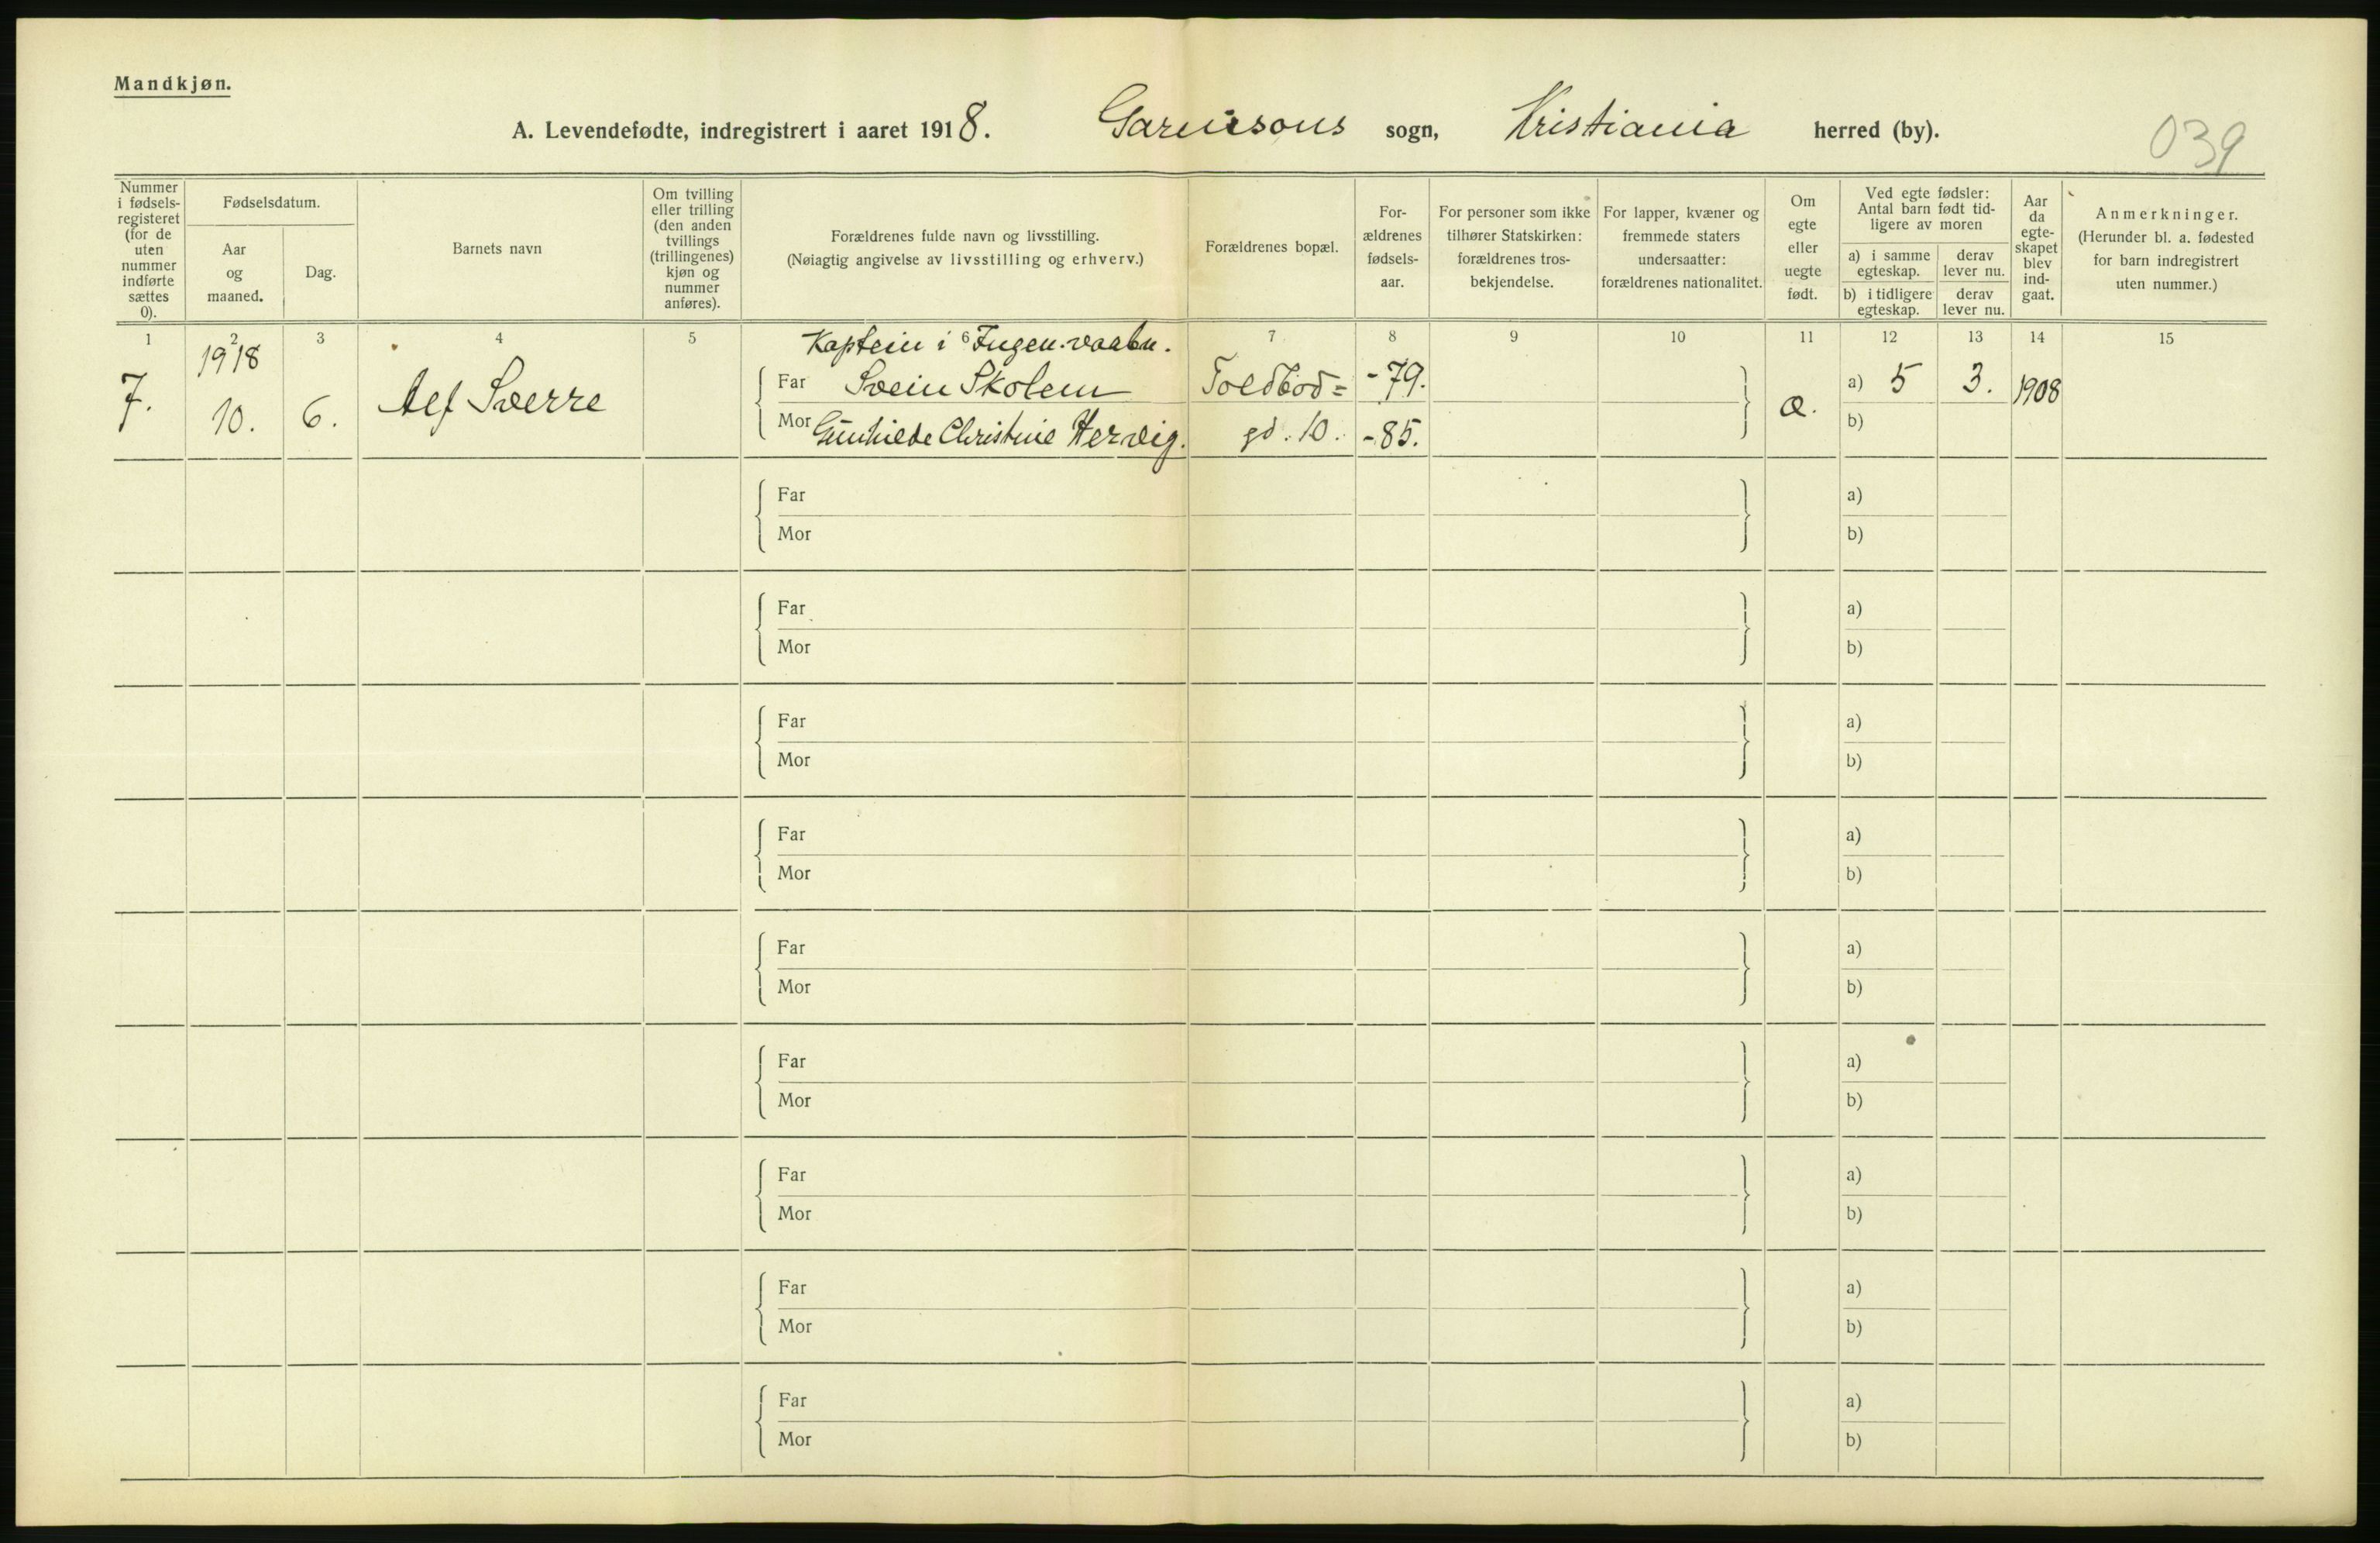 Mandkjøn.
A. Levendefødte, indregistrert i aaret 1918. Garnisons sogn, Kristiania herred (by).
039
Nummer i fødsels-registeret (for de uten nummer indførte sættes 0).
Fødselsdatum.
Aar og maaned.
Dag.
Barnets navn
Om tvilling eller trilling (den anden tvillings (trillingenes) kjøn og nummer anføres).
Forældrenes fulde navn og livsstilling.
(Nøiagtig angivelse av livsstilling og erhverv.)
Forældrenes bopæl.
For-ældrenes fødsels-aar.
For personer som ikke tilhører Statskirken: forældrenes tros-bekjendelse.
For lapper, kvæner og fremmede staters undersaatter: forældrenes nationalitet.
Om egte eller uegte født.
Ved egte fødsler: Antal barn født tid-ligere av moren
a) i samme egteskap.
derav lever nu.
b) i tidligere egteskap.
derav lever nu.
Aar da egte-skapet blev ind-gaat.
Anmerkninger.
(Herunder bl. a. fødested for barn indregistrert uten nummer.)
1 2 3 4 5 6 7 8 9 10 11 12 13 14 15
Kaptein i Ingen.vaabn.
7. 1918 10. 6. Alf Sverre
Far Svein Skolem Toldbod= -79. a) 5 3. 1908
Mor Gunhilde Christine Hervig. gd. 10. -85. æ. b)
Far a)
Mor b)
Far a)
Mor b)
Far a)
Mor b)
Far a)
Mor b)
Far a)
Mor b)
Far a)
Mor b)
Far a)
Mor b)
Far a)
Mor b)
Far a)
Mor b)